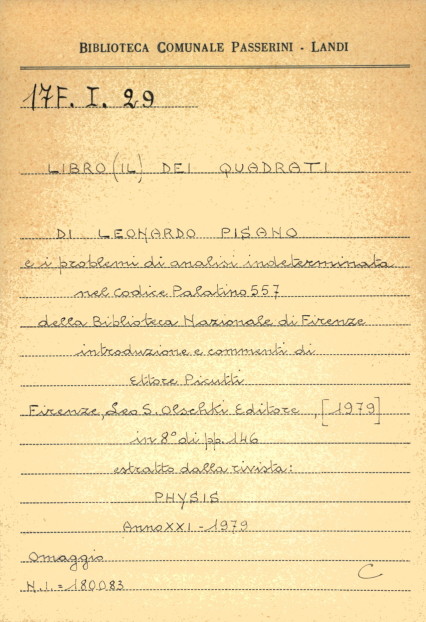 BIBLIOTECA COMUNALE PASSERINI - LANDI
17F. I. 29
LIBRO (IL) DEI QUADRATI
DI LEONARDO PISANO
e i problemi di analisi indeterminata
nel Codice Palatino 557
della Biblioteca Nazionale di Firenze
introduzione e commenti di
Ettore Picutti
Firenze, Leo S. Olschki Editore, [1979]
in 8° di pp. 146
estratto dalla rivista:
PHYSIS
Anno XXI - 1979
Omaggio
N.I. = 180083
C